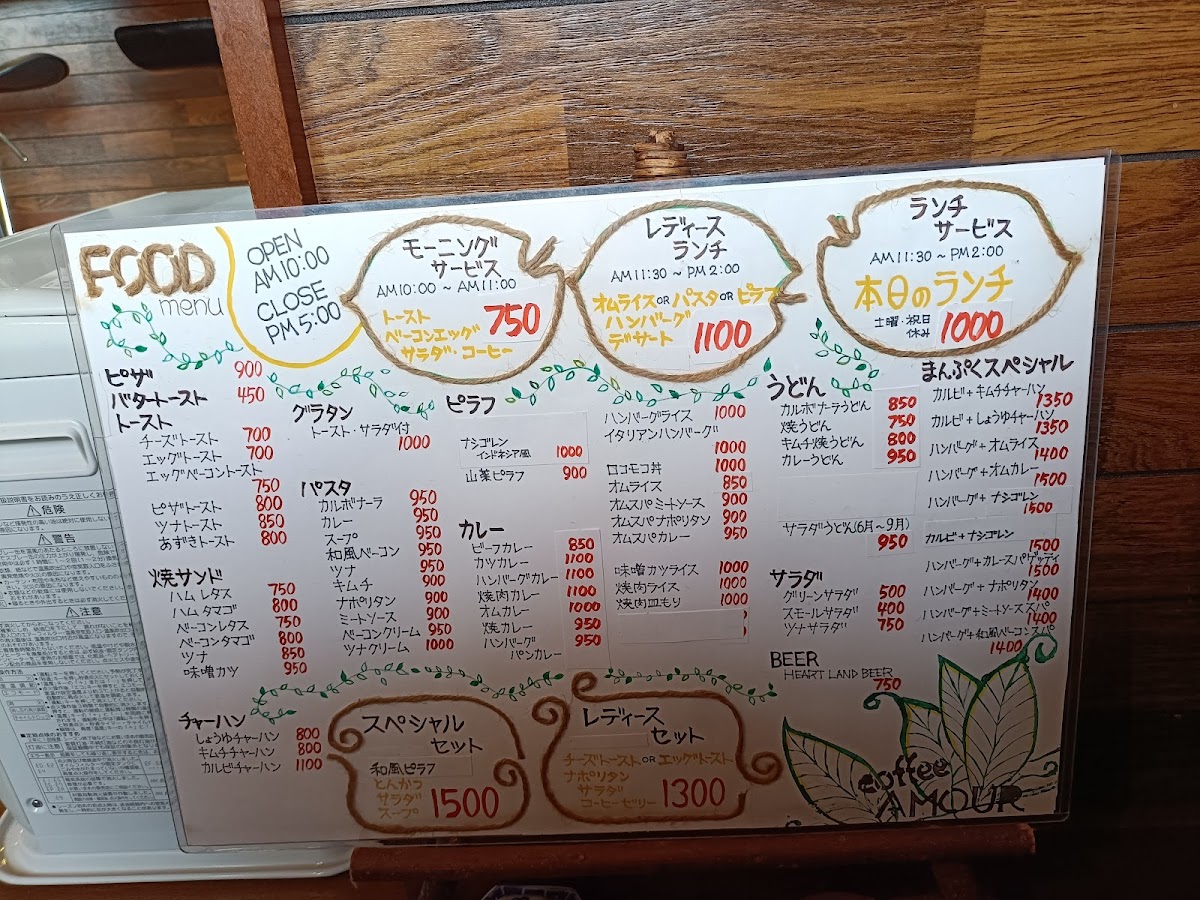 FOOD
menu
OPEN
AM10:00
CLOSE
PM5:00
モーニング
サービス
AM10:00 ~ AM11:00
トースト
ベーコンエッグ
サラダ・コーヒー
750
レディース
ランチ
AM11:30 ~ PM2:00
オムライス OR パスタ OR ピラフ
ハンバーグ
デザート
1100
ランチ
サービス
AM11:30 ~ PM2:00
本日のランチ
土曜・祝日
休み
1000
ピザ 900
バタートースト 450
トースト
チーズトースト 700
エッグトースト 700
エッグベーコントースト
750
ピザトースト 800
ツナトースト 850
あずきトースト 800
焼サンド
ハムレタス 750
ハムタマゴ 800
ベーコンレタス 750
ベーコンタマゴ 800
ツナ 850
味噌カツ 950
チャーハン
しょうゆチャーハン 800
キムチチャーハン 800
カルビチャーハン 1100
グラタン
トースト・サラダ付
1000
パスタ
カルボナーラ 950
カレー 950
スープ 950
和風ベーコン 950
ツナ 950
キムチ 900
ナポリタン 900
ミートソース 900
ベーコンクリーム 950
ツナクリーム 1000
ピラフ
ナシゴレン
インドネシア風 1000
山菜ピラフ 900
カレー
ビーフカレー 850
カツカレー 1100
ハンバーグカレー 1100
焼肉カレー 1100
オムカレー 1000
焼カレー 950
ハンバーグ
パンカレー 950
ハンバーグライス 1000
イタリアンハンバーグ
1000
ロコモコ丼 1000
オムライス 850
オムスパミートソース 900
オムスパナポリタン 900
オムスパカレー 950
味噌カツライス 1000
焼肉ライス 1000
焼肉皿もり 1000
うどん
カルボナーラうどん 850
焼うどん 750
キムチ焼うどん 800
カレーうどん 950
サラダうどん(6月~9月)
950
サラダ
グリーンサラダ 500
スモールサラダ 400
ツナサラダ 750
BEER
HEART LAND BEER
750
まんぷくスペシャル
カルビ+キムチチャーハン
1350
カルビ+しょうゆチャーハン
1350
ハンバーグ+オムライス
1400
ハンバーグ+オムカレー
1500
ハンバーグ+ナシゴレン
1500
カルビ+ナシゴレン
1500
ハンバーグ+カレースパゲッティ
1500
ハンバーグ+ナポリタン
1400
ハンバーグ+ミートソーススパ
1400
ハンバーグ+和風ベーコンスパ
1400
スペシャル
セット
和風ピラフ
とんかつ
サラダ
スープ
1500
レディース
セット
チーズトースト OR エッグトースト
ナポリタン
サラダ
コーヒーゼリー
1300
coffee
AMOUR
危険
警告
注意